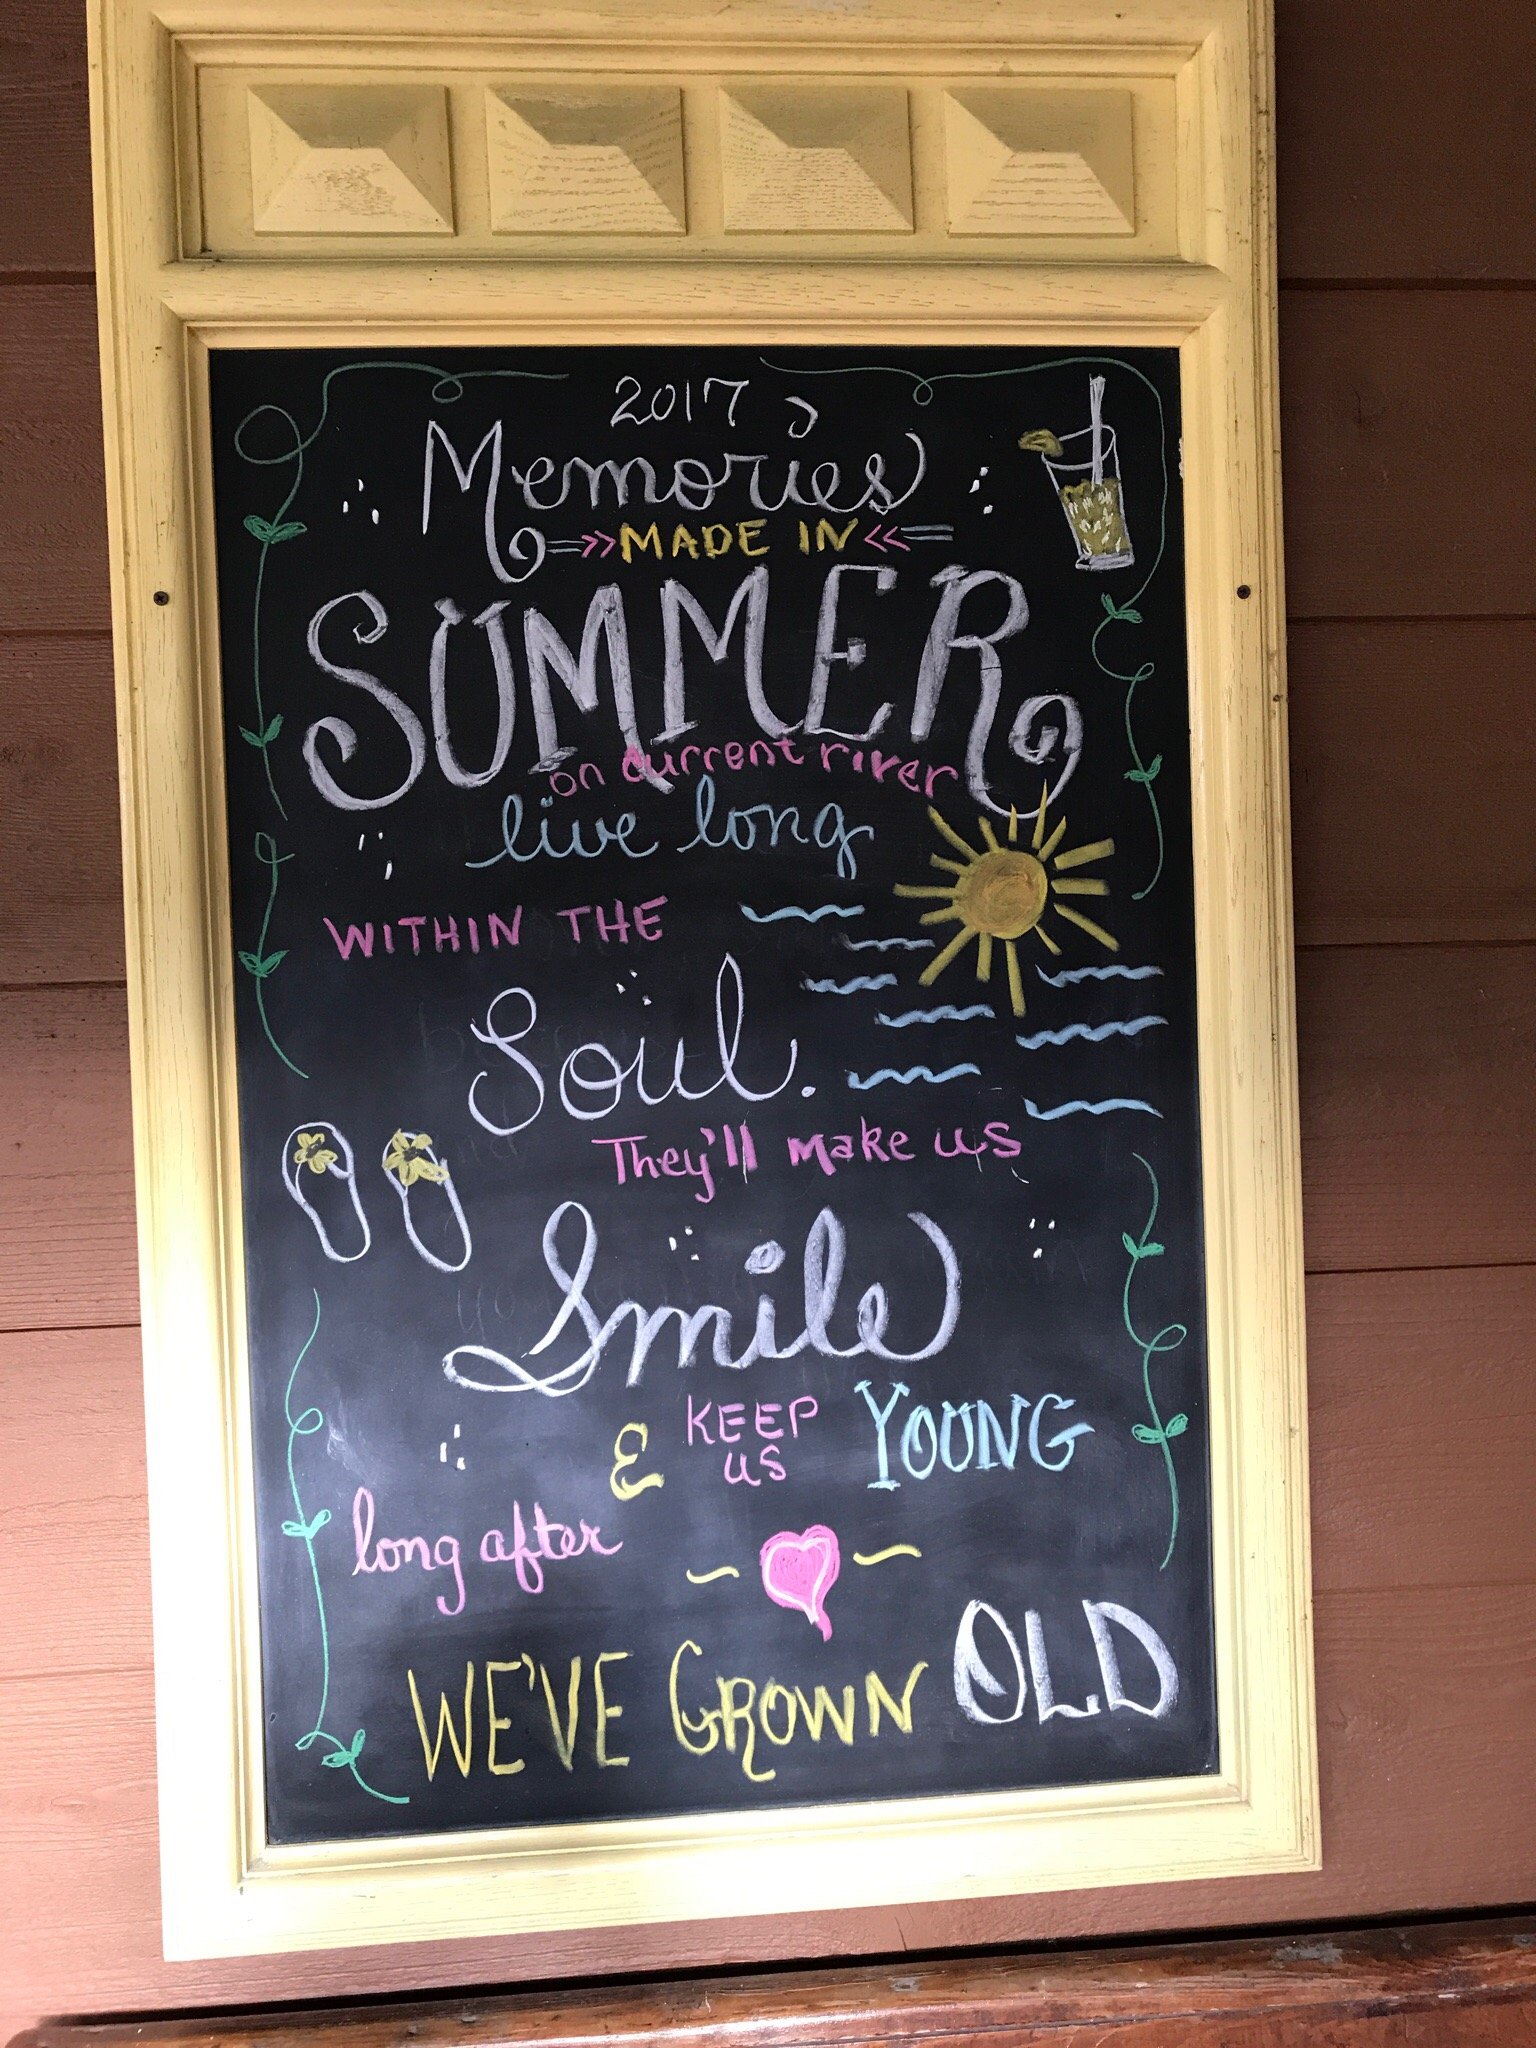 2017
Memories
MADE IN
SUMMER
on current river
live long
WITHIN THE
Soul.
They'll make us
Smile
& KEEP US YOUNG
long after
WE'VE GROWN OLD